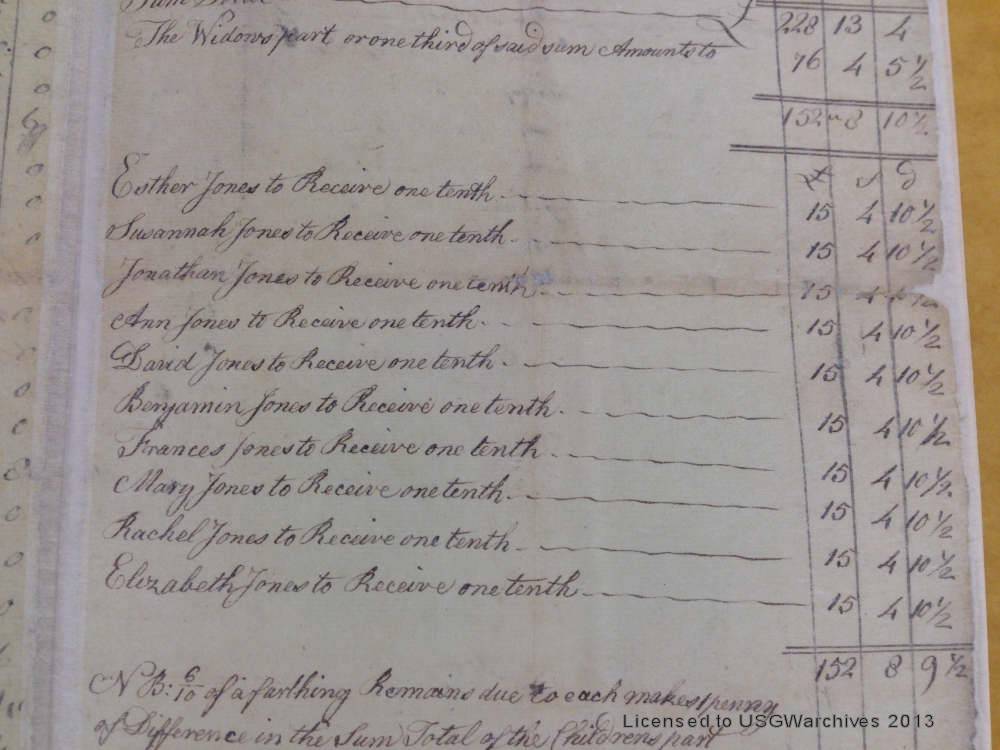 228 13 4
The Widows part or one third of said sum Amounts to 76 4 5 1/2
152 " 8 10 1/2
£ s d
Esther Jones to Receive one tenth 15 4 10 1/2
Susannah Jones to Receive one tenth 15 4 10 1/2
Jonathan Jones to Receive one tenth 15 4
Ann Jones to Receive one tenth 15 4 10 1/2
David Jones to Receive one tenth 15 4 10 1/2
Benjamin Jones to Receive one tenth 15 4 10 1/2
Frances Jones to Receive one tenth 15 4 10 1/2
Mary Jones to Receive one tenth 15 4 10 1/2
Rachel Jones to Receive one tenth 15 4 10 1/2
Elizabeth Jones to Receive one tenth 15 4 10 1/2
152 8 9 1/2
N B: 6/10 of a farthing Remains due to each makes 1 penny
of Difference in the Sum Total of the Childrens part
Licensed to USGWarchives 2013